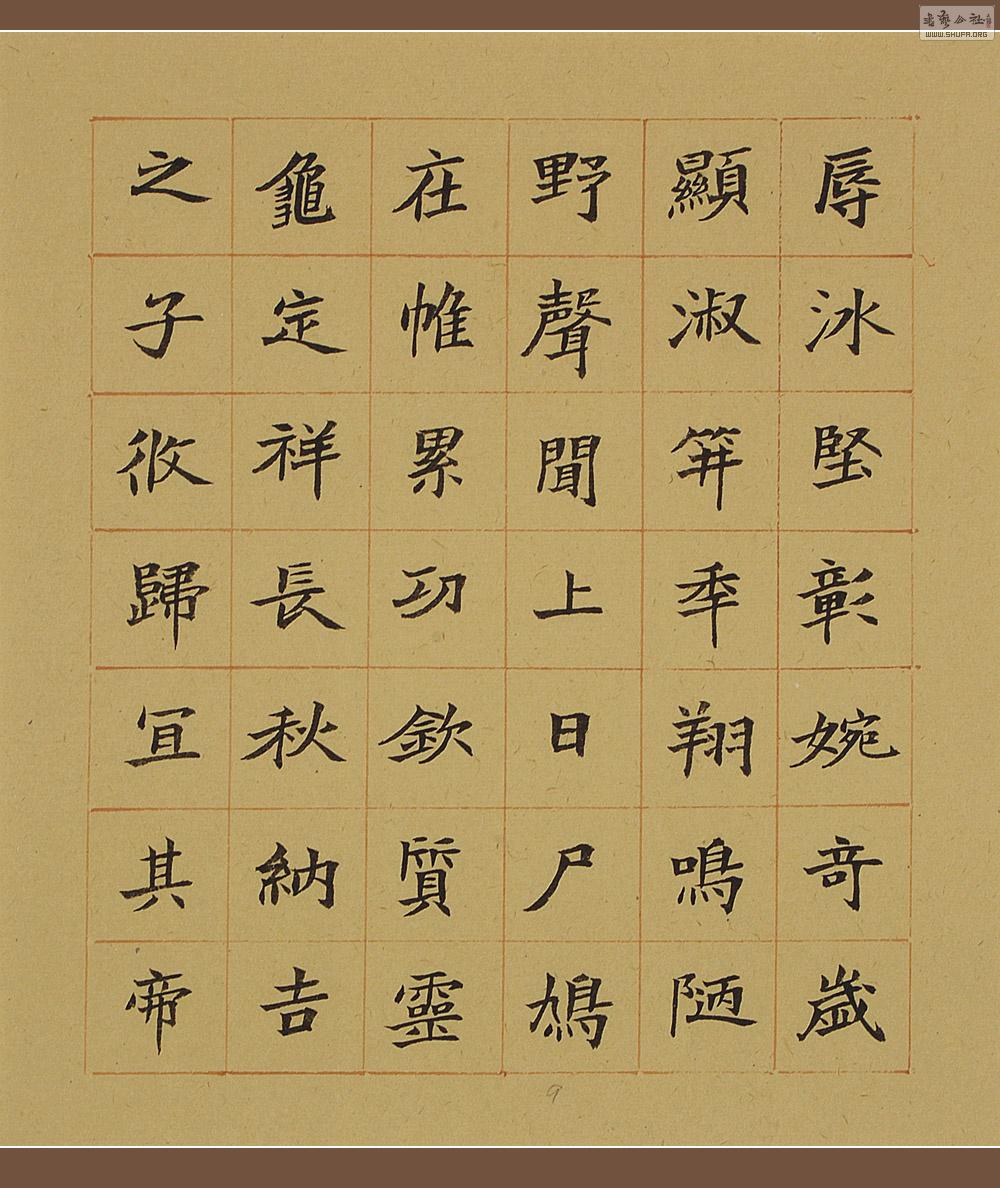 辱冰堅彰婉竒歲
顯淑笄秊翔鳴陋
野聲聞上日尸鳩
在帷累功欽質靈
龜定祥長秋納吉
之子攸歸冝其帝
9
书艺公社
WWW.SHUFA.ORG